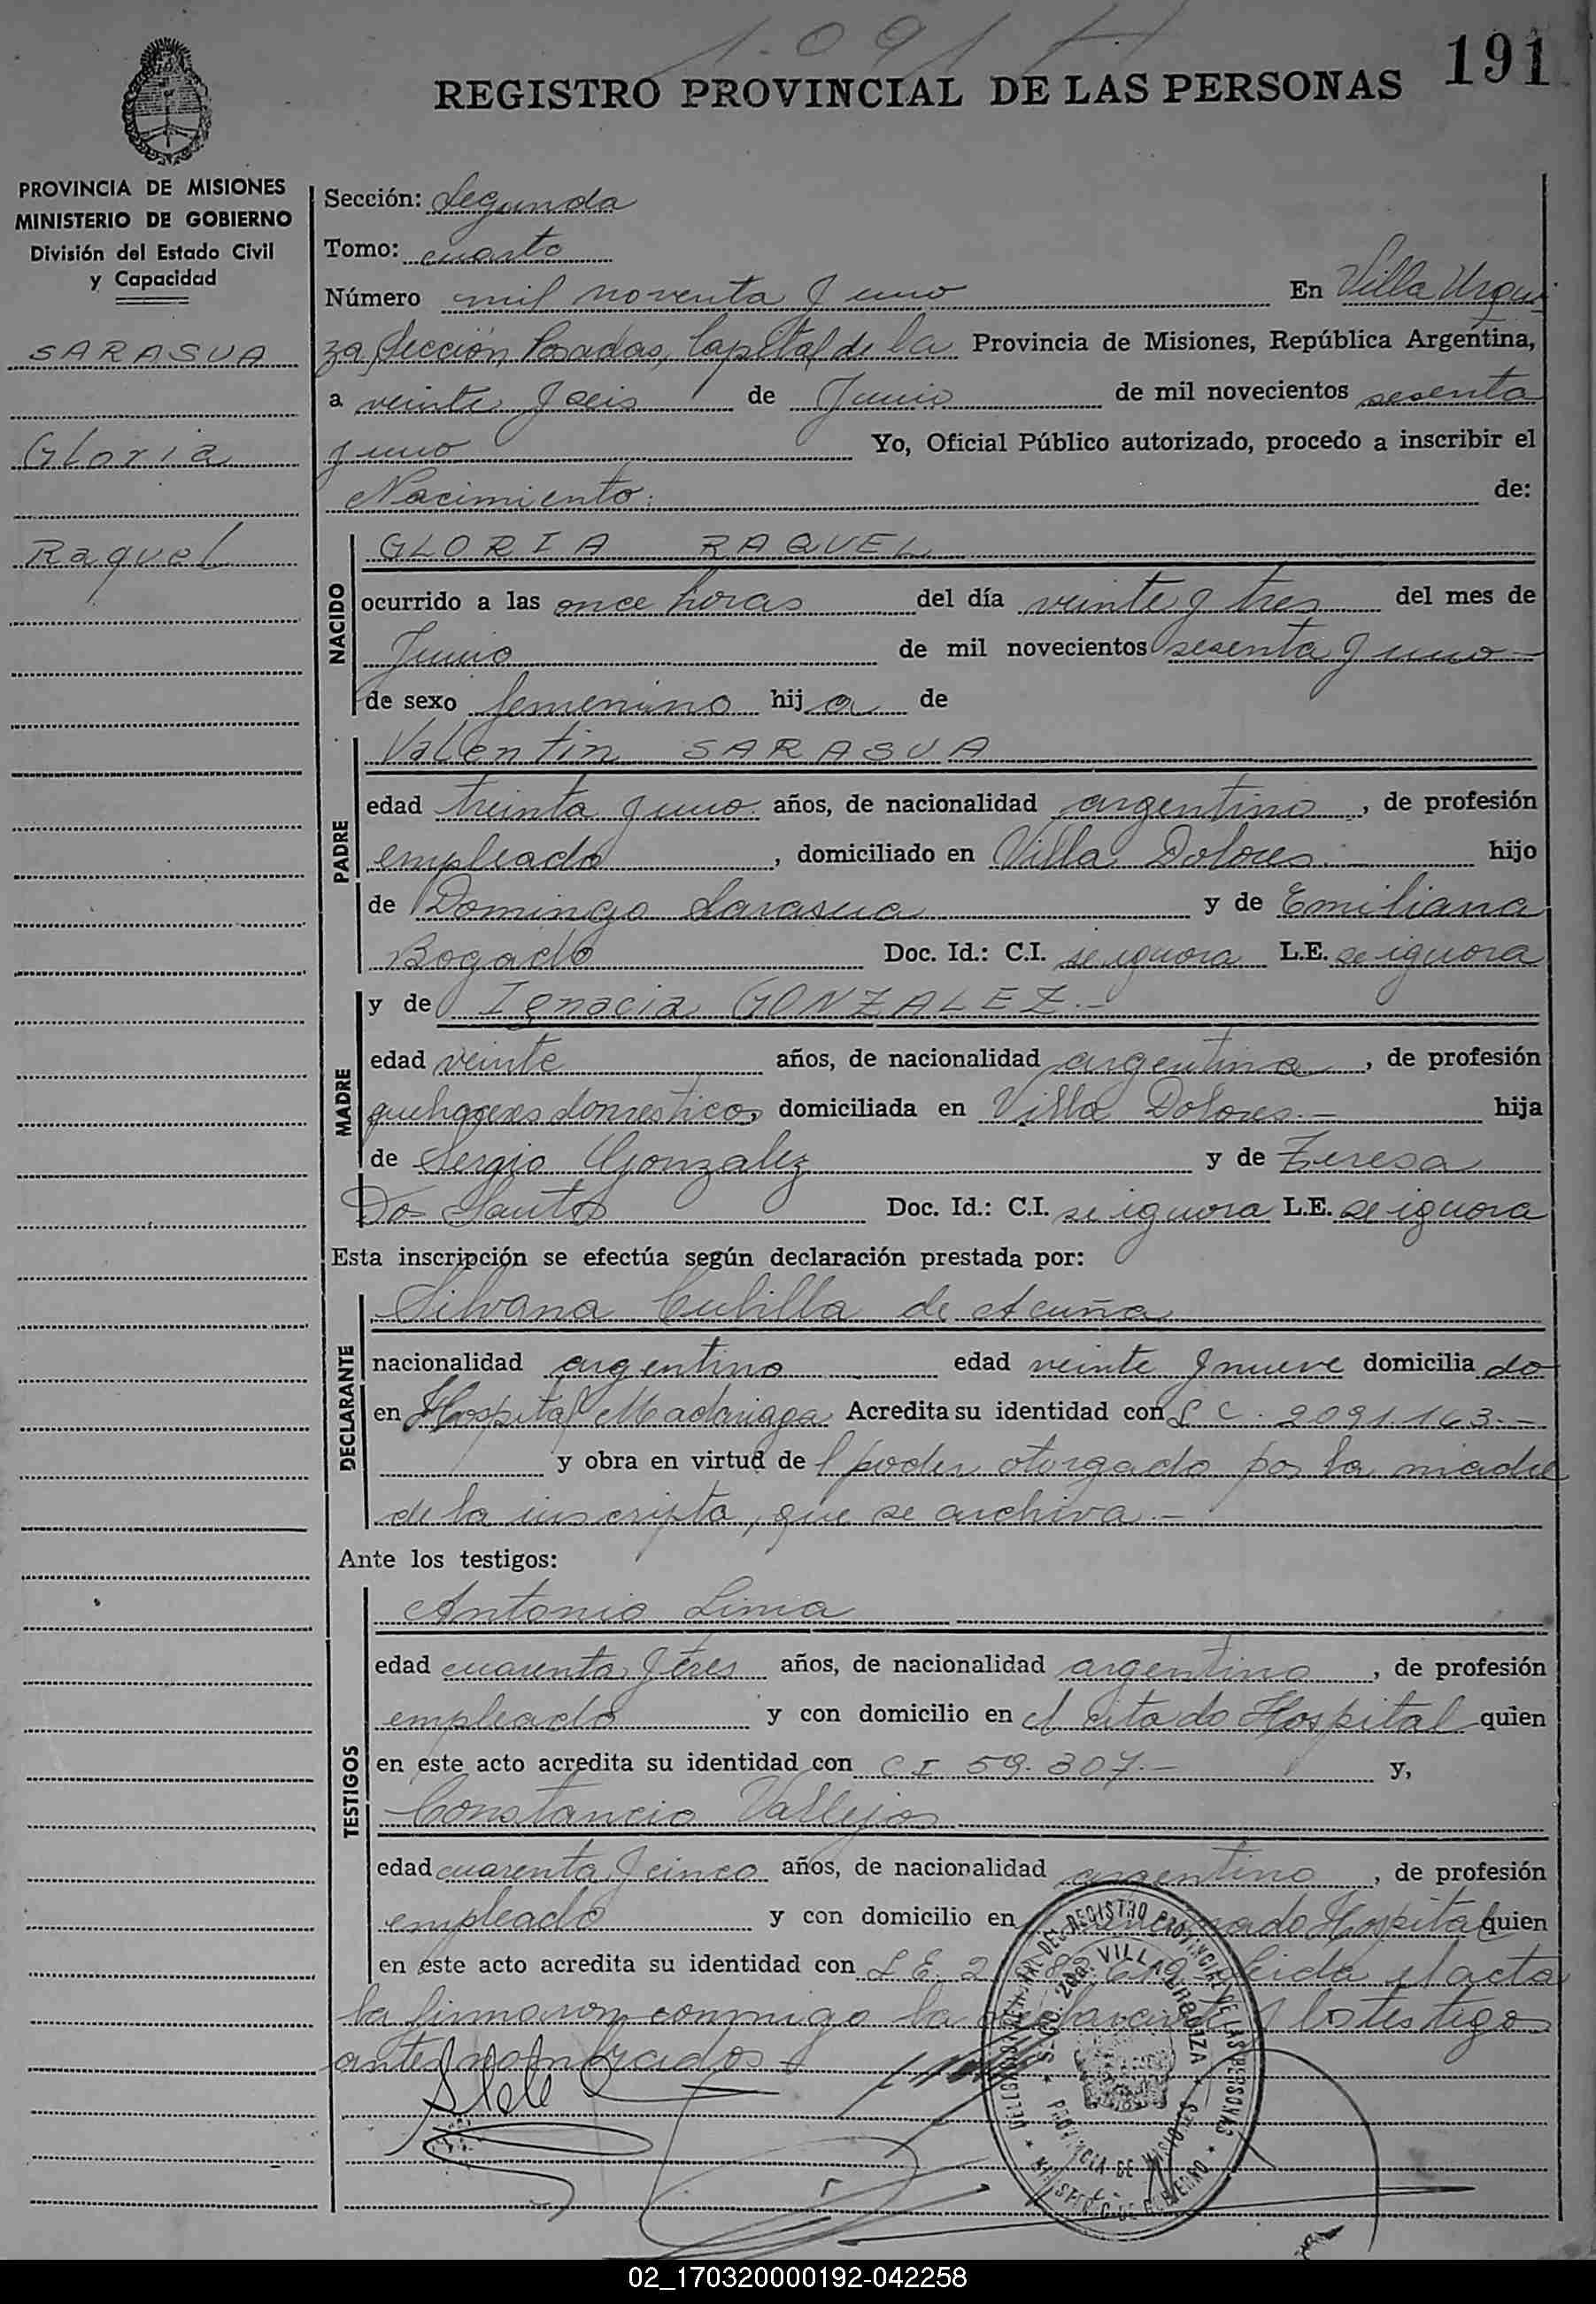 1.091
191
REGISTRO PROVINCIAL DE LAS PERSONAS
PROVINCIA DE MISIONES
MINISTERIO DE GOBIERNO
División del Estado Civil
y Capacidad
SARASUA
Gloria
Raquel
Sección: Segunda
Tomo: cuarto
Número mil noventa y uno En Villa Urqui
za Sección, Posadas, Capital de la Provincia de Misiones, República Argentina,
a veinte y seis de Junio de mil novecientos sesenta
y uno Yo, Oficial Público autorizado, procedo a inscribir el
Nacimiento: de:
NACIDO
GLORIA RAQUEL
ocurrido a las once horas del día veinte y tres del mes de
Junio de mil novecientos sesenta y uno -
de sexo femenino hij a de
PADRE
Valentin SARASUA
edad treinta y uno años, de nacionalidad argentino, de profesión
empleado, domiciliado en Villa Dolores.- hijo
de Domingo Sarasua y de Emiliana
Bogado Doc. Id.: C.I. se ignora L.E. se ignora
MADRE
y de Ignacia GONZALEZ.-
edad veinte años, de nacionalidad argentina, de profesión
quehaceres domesticos, domiciliada en Villa Dolores.- hija
de Sergio Gonzalez y de Teresa
Do Santos Doc. Id.: C.I. se ignora L.E. se ignora
Esta inscripción se efectúa según declaración prestada por:
DECLARANTE
Silvana Cubilla de Acuña
nacionalidad argentino edad veinte y nueve domicilia do
en Hospital Madariaga Acredita su identidad con L C. 2091.163.-
y obra en virtud de l poder otorgado por la madre
de la inscripta, que se archiva.-
Ante los testigos:
TESTIGOS
Antonio Lima
edad cuarenta y tres años, de nacionalidad argentino, de profesión
empleado y con domicilio en el citado Hospital quien
en este acto acredita su identidad con C I 59.307.- y,
Constancio Vallejos
edad cuarenta y cinco años, de nacionalidad argentino, de profesión
empleado y con domicilio en Hospital quien
en este acto acredita su identidad con L E. Leida el acta
la firmaron conmigo la declarante y los testigos
antes nombrados.-
DELEGACION DEL REGISTRO PROVINCIAL DE LAS PERSONAS
SECC. 2da. VILLA URQUIZA
PROVINCIA DE MISIONES
MINISTERIO DE GOBIERNO
02_170320000192-042258